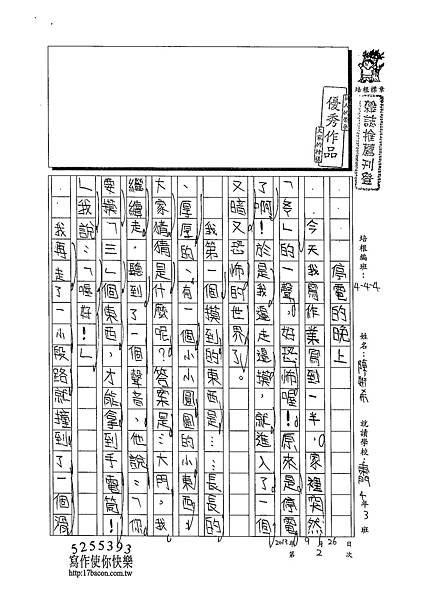 培根標章
雜誌推薦刊登
優秀作品
培根編班：4-4-4
姓名：陳
就讀學校：
4年3班
2013年9月26日
第2次
停電的晚上
今天我寫作業寫到一半，家裡突然
「ㄉㄥ」的一聲，好恐怖喔！原來是停電
了啊！於是我邊走邊摸，就進入了一個
又暗又恐怖的世界了。
我第一個摸到的東西是……長長的
、厚厚的、有一個小小圓圓的小東西，
大家猜猜是什麼呢？答案是：大門，我
繼續走，聽到了一個聲音，他說：「你
要摸『三』個東西，才能拿到手電筒！
」我說：「喔好！」
我再走了一小段路就撞到了一個滑
5255393
寫作使你快樂
http://17bacon.com.tw